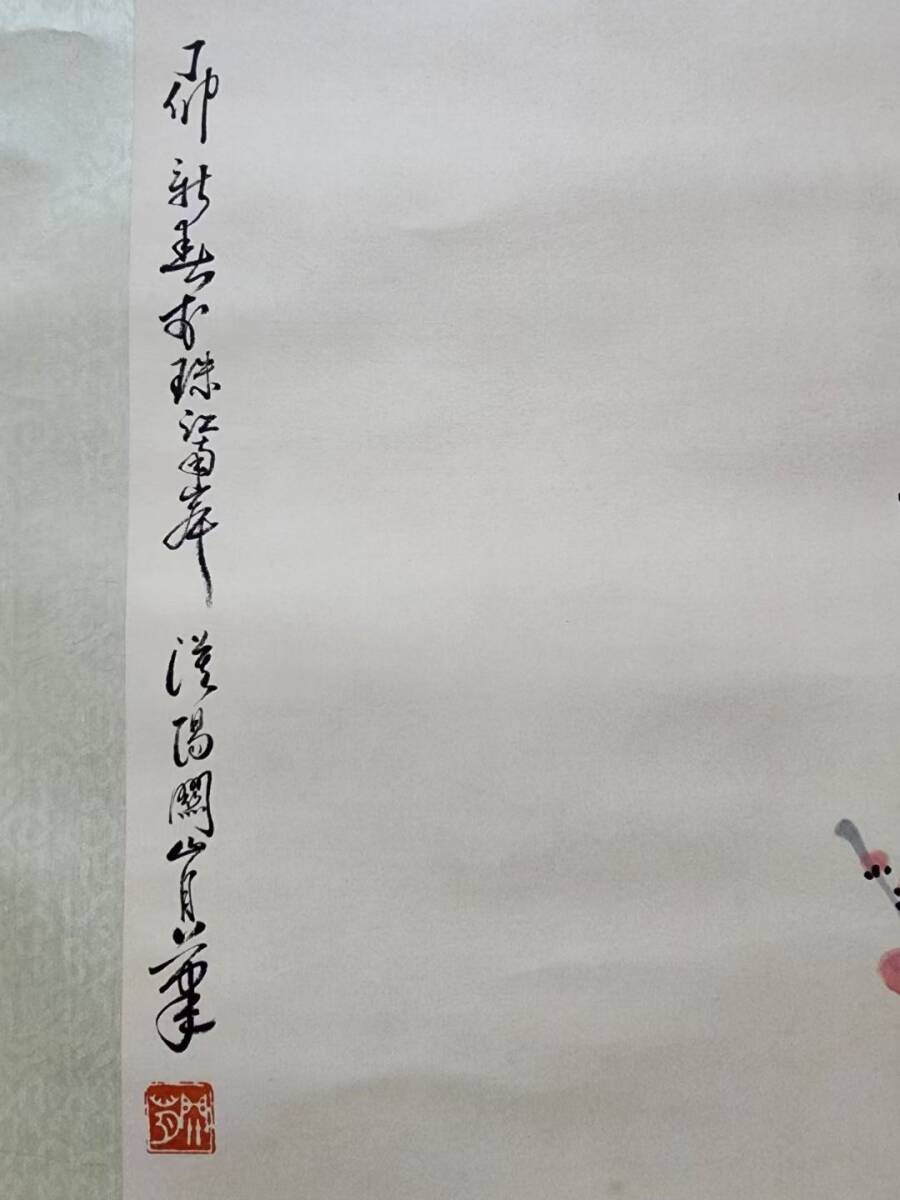 丁卯新春於珠江南岸
漠陽關山月筆